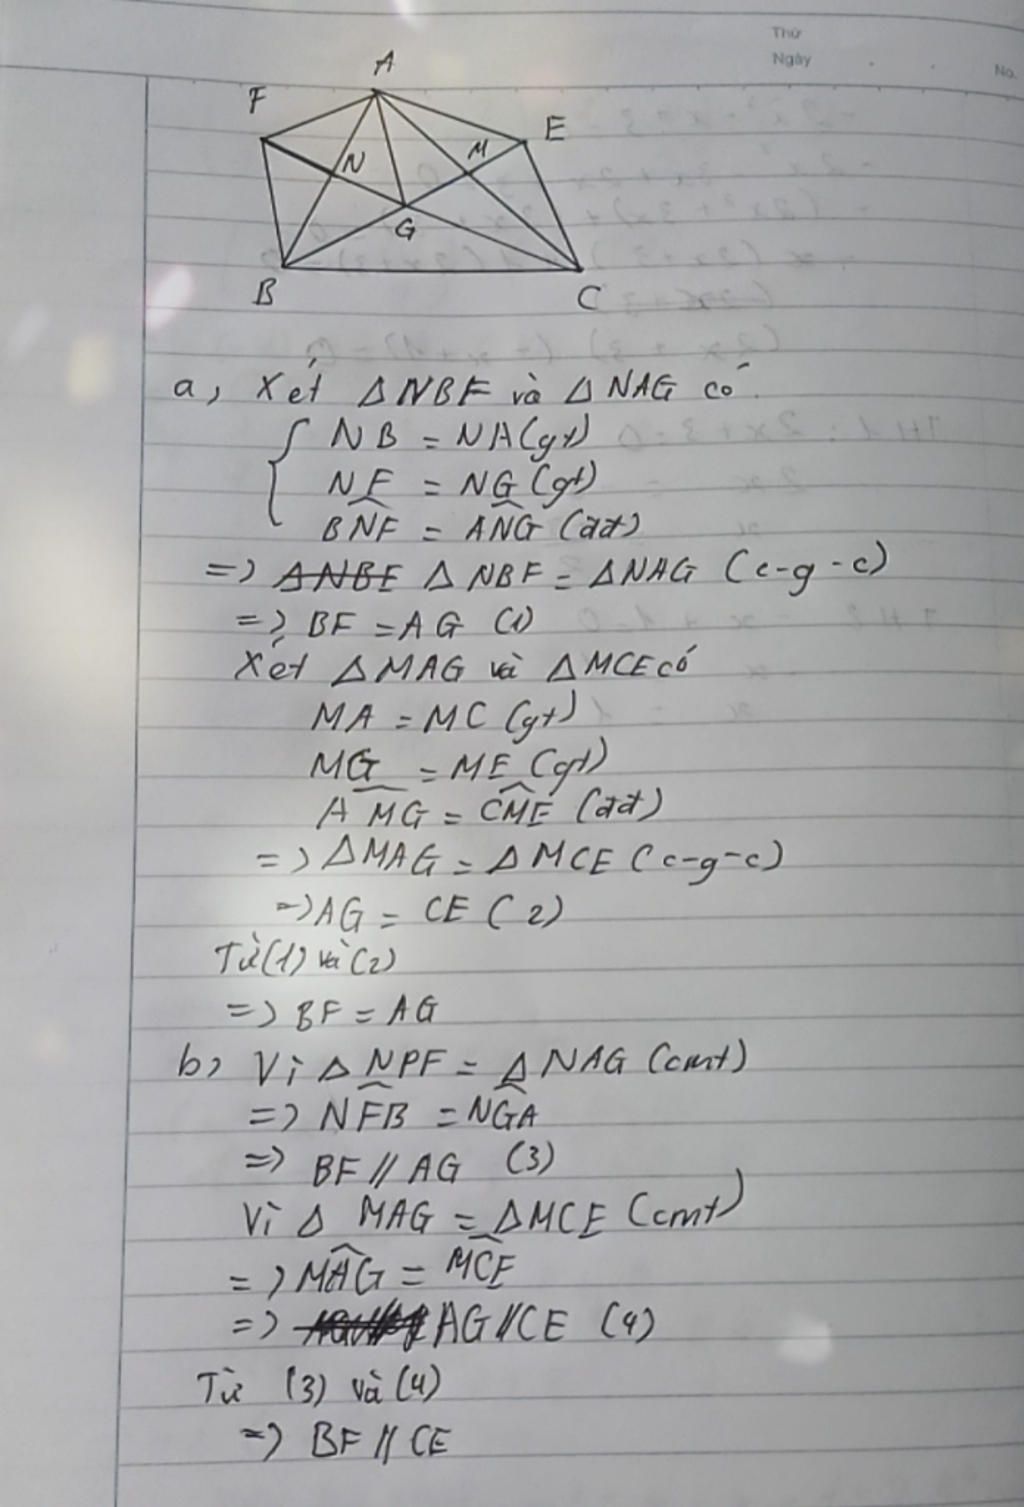 Thứ
Ngày
No.
A
F
E
N
M
G
B
C
a, Xét Δ NBF và Δ NAG có
NB = NA (gt)
NF = NG (gt)
BNF = ANG (đđ)
=> ΔNBF Δ NBF = ΔNAG (c-g-c)
=> BF = AG (1)
Xét ΔMAG và ΔMCE có
MA = MC (gt)
MG = ME (gt)
AMG = CME (đđ)
=> ΔMAG = ΔMCE (c-g-c)
=> AG = CE (2)
Từ (1) và (2)
=> BF = AG
b, Vì Δ NPF = Δ NAG (cmt)
=> NFB = NGA
=> BF // AG (3)
Vì Δ MAG = ΔMCE (cmt)
=> MAG = MCE
=> AG // CE (4)
Từ (3) và (4)
=> BF // CE